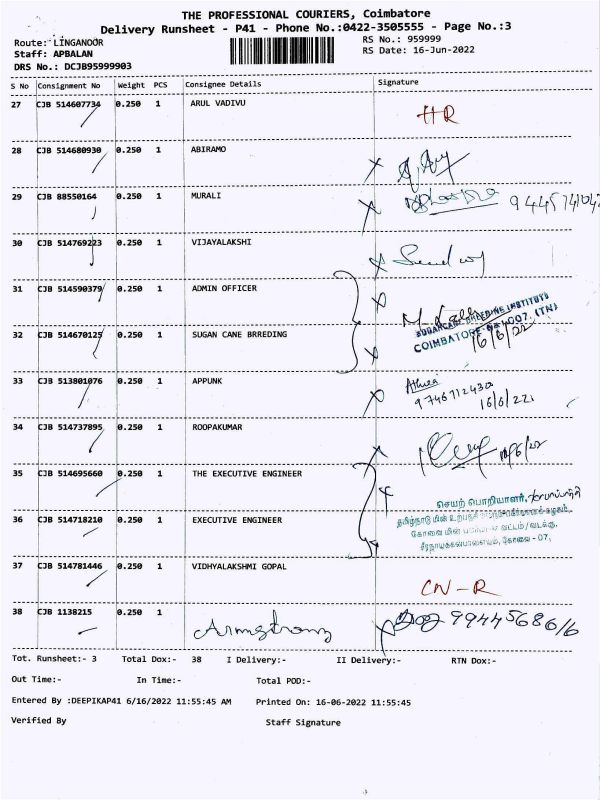 THE PROFESSIONAL COURIERS, Coimbatore
Delivery Runsheet - P41 - Phone No.:0422-3505555 - Page No.:3
Route: LINGANOOR RS No.: 959999
Staff: APBALAN RS Date: 16-Jun-2022
DRS No.: DCJB95999903
S No Consignment No Weight PCS Consignee Details Signature
27 CJB 514607734 0.250 1 ARUL VADIVU HR
28 CJB 514680930 0.250 1 ABIRAMO
29 CJB 88550164 0.250 1 MURALI
30 CJB 514769223 0.250 1 VIJAYALAKSHI
31 CJB 514590379 0.250 1 ADMIN OFFICER
SUGARCANE BREEDING INSTITUTE
32 CJB 514670125 0.250 1 SUGAN CANE BRREDING COIMBATORE (TN)
16/6/22
33 CJB 513801076 0.250 1 APPUNK
9746712430
16/6/22
34 CJB 514737895 0.250 1 ROOPAKUMAR
35 CJB 514695660 0.250 1 THE EXECUTIVE ENGINEER
செயற் பொறியாளர்,
36 CJB 514718210 0.250 1 EXECUTIVE ENGINEER
வட்டம்/வடக்கு,
கோவை - 07,
37 CJB 514781446 0.250 1 VIDHYALAKSHMI GOPAL
CN-R
38 CJB 1138215 0.250 1 Armstrong
Tot. Runsheet:- 3 Total Dox:- 38 I Delivery:- II Delivery:- RTN Dox:-
Out Time:- In Time:- Total POD:-
Entered By :DEEPIKAP41 6/16/2022 11:55:45 AM Printed On: 16-06-2022 11:55:45
Verified By Staff Signature